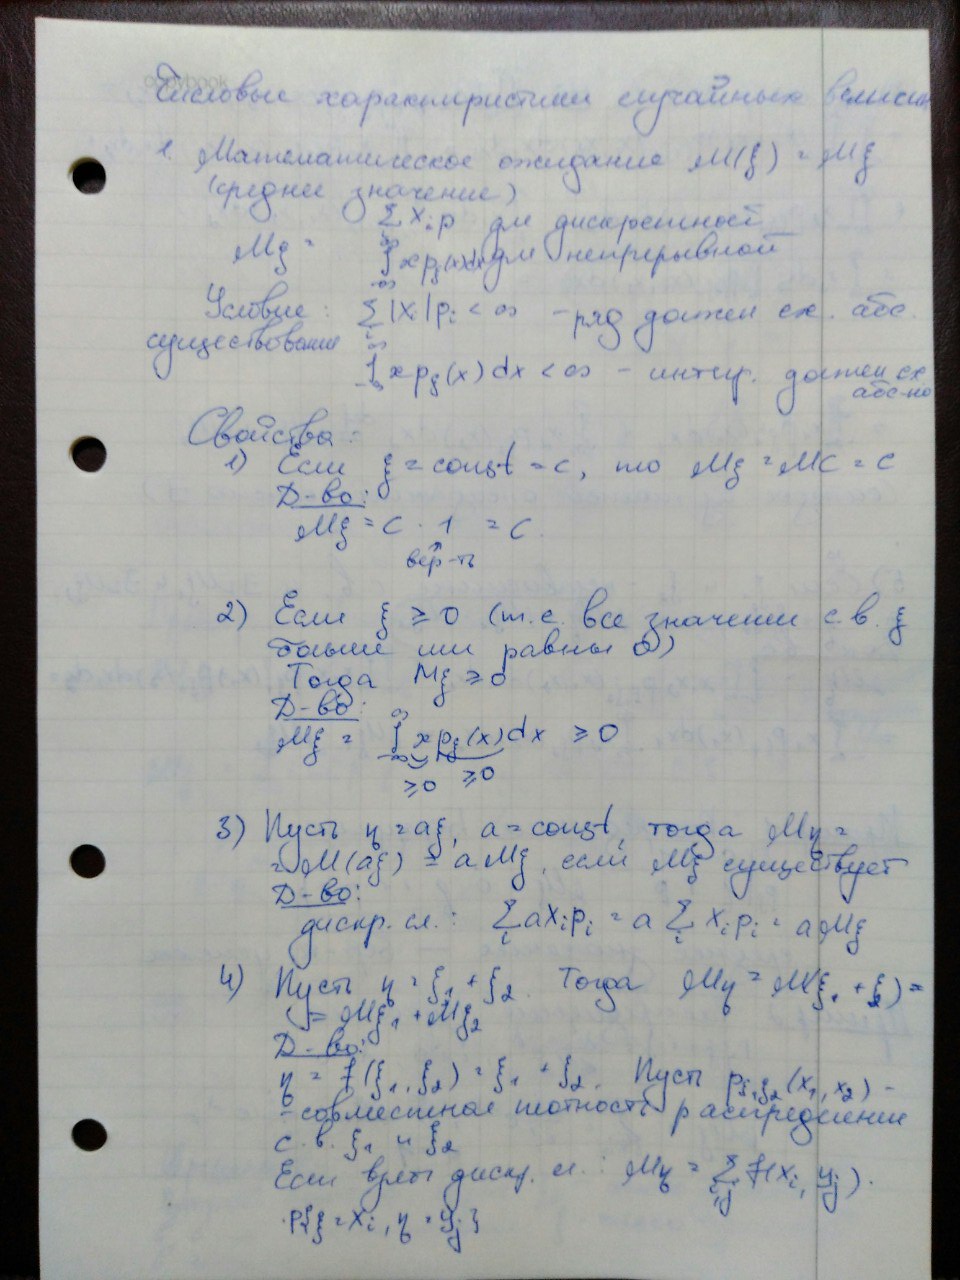 copybook
Числовые характеристики случайных величин
1. Математическое ожидание M(ξ) = Mξ
(среднее значение)
Σxᵢp для дискретност
Mξ = ∫_{-∞}^{∞} x p_ξ(x)dx для непрерывной
Условие : Σᵢ|xᵢ|pᵢ < ∞ - ряд должен сх. абс.
существования
∫_{-∞}^{∞} x p_ξ(x) dx < ∞ - интегр. должен сх
абс-но
Свойства:
1) Если ξ = const = c, то Mξ = MC = C
Д-во:
Mξ = C · 1 = C.
вер-ть
2) Если ξ ≥ 0 (т.е. все значения с.в. ξ
больше или равны 0)
Тогда Mξ ≥ 0
Д-во:
Mξ = ∫_{-∞}^{∞} x p_ξ(x) dx ≥ 0
≥0 ≥0
3) Пусть η = aξ, a = const, тогда Mη =
= M(aξ) = aMξ, если Mξ существует
Д-во:
дискр. сл.: Σᵢ axᵢpᵢ = a Σᵢ xᵢpᵢ = aMξ
4) Пусть η = ξ₁ + ξ₂. Тогда Mη = M(ξ₁ + ξ₂) =
= Mξ₁ + Mξ₂
Д-во:
η = f(ξ₁, ξ₂) = ξ₁ + ξ₂. Пусть p_{ξ₁ξ₂}(x₁, x₂) -
- совместная плотность распределения
с.в. ξ₁ и ξ₂
Если взять дискр. сл.: Mη = Σ_{i,j} f(xᵢ, yⱼ) ·
· P{ξ = xᵢ, η = yⱼ}